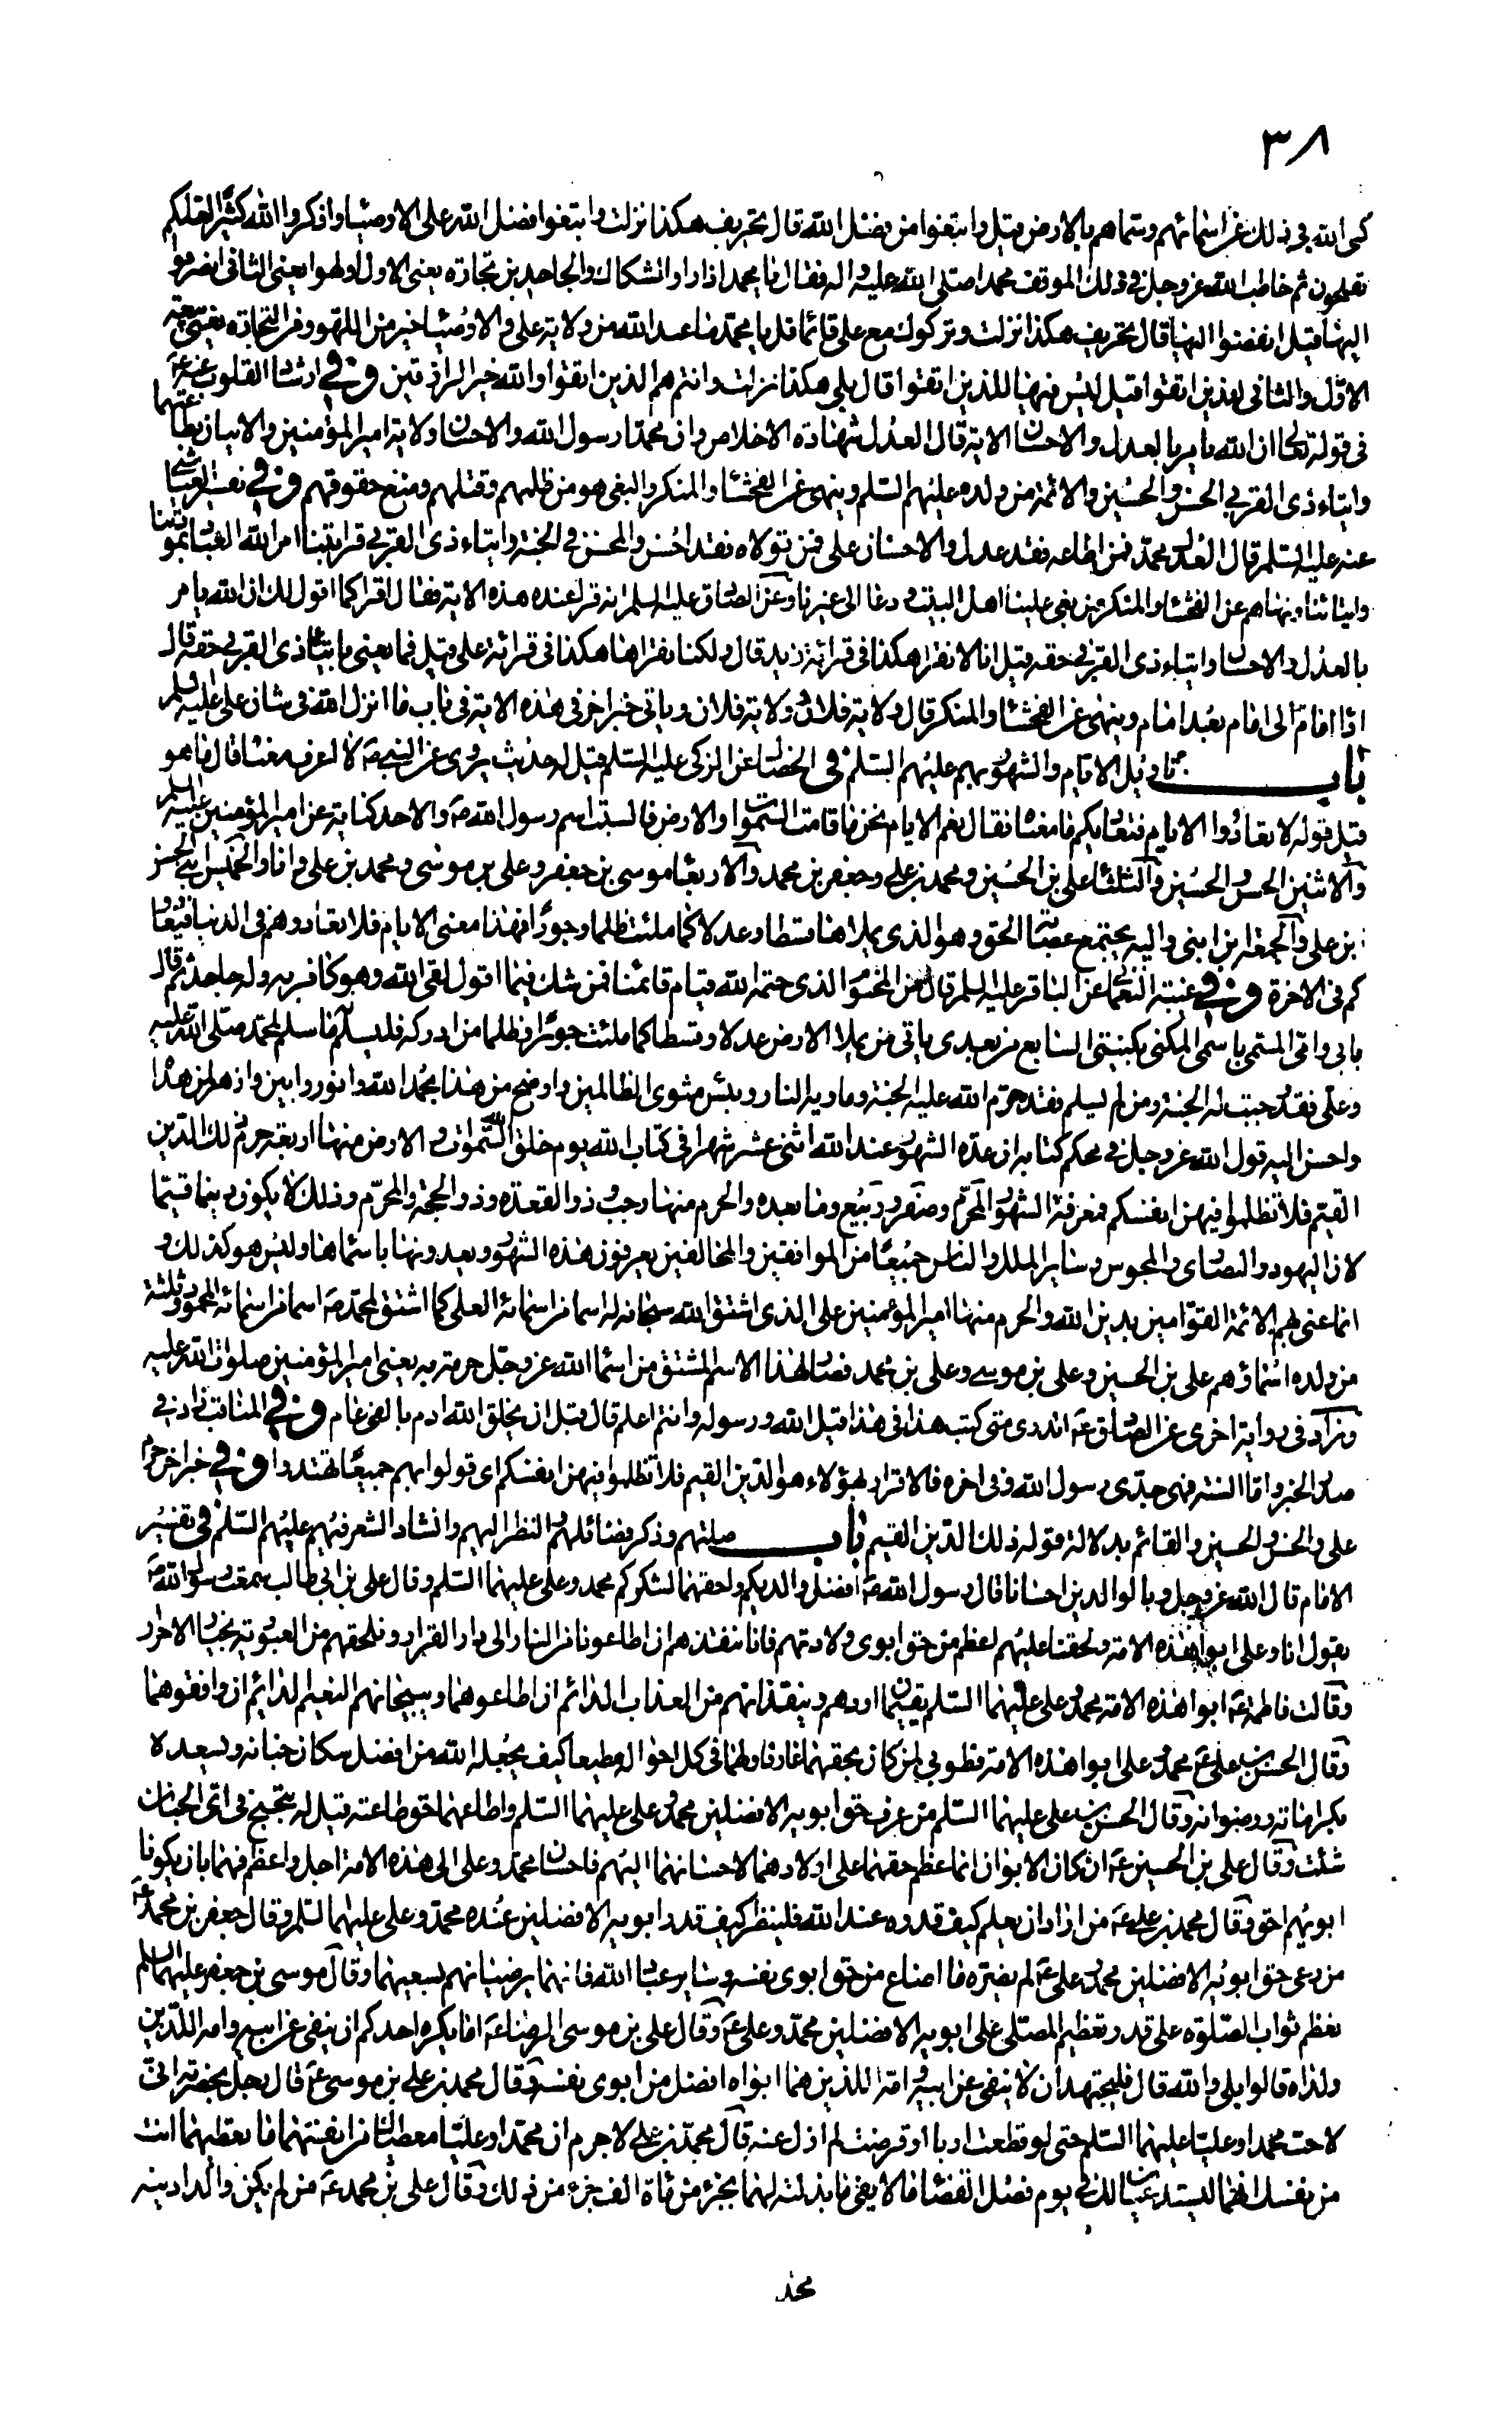 ٣٨
كنى الله في ذلك عن اسمائهم وسماهم بالارض قيل وابتغوا من فضل الله قال تحريف هكذا نزلت وابتغوا فضل الله على الاوصياء واذكروا الله كثيرا لعلكم
تفلحون ثم خاطب الله عز وجل في ذلك الموقف محمدا صلى الله عليه واله فقال يا محمد اذا راوا الشكاك والجاحدين تجارة يعنى الاول او لهوا يعنى الثانى انصرفوا
اليها قيل انفضوا اليها قال تحريف هكذا نزلت وتركوك مع على قائما قل يا محمد ما عند الله من ولاية على والاوصياء خير من اللهو ومن التجارة يعنى بيعة
الاول والثانى للذين اتقوا قيل ليس فيها للذين اتقوا قال بلى هكذا نزلت وانتم هم الذين اتقوا والله خير الرازقين وفي ارشاد القلوب عنه ع
فى قوله تعالى ان الله يامر بالعدل والاحسان الاية قال العدل شهادة الاخلاص وان محمدا رسول الله والاحسان ولاية امير المؤمنين والاتيان بطاعتهما
وايتاء ذى القربى الحسن والحسين والائمة من ولده عليهم السلم وينهى عن الفحشاء والمنكر والبغى هو من ظلمهم وقتلهم ومنع حقوقهم وفي تفسير العياشي
عنه عليه السلم قال العدل محمد فمن اطاعه فقد عدل والاحسان على فمن تولاه فقد احسن والمحسن في الجنة وايتاء ذى القربى قرابتنا امر الله العباد بمودتنا
وايتائنا ونهاهم عن الفحشاء والمنكر من بغى علينا اهل البيت ودعا الى غيرنا وعن الصادق عليه السلم انه قرا عنده هذه الاية فقال اقرا كما اقول لك ان الله يامر
بالعدل والاحسان وايتاء ذى القربى حقه قيل انا لا نقرا هكذا فى قرائة زيد قال ولكنا نقراها هكذا فى قرائة على قيل فما يعنى بايتاء ذى القربى حقه قال
اداء امام الى امام بعد امام وينهى عن الفحشاء والمنكر قال ولاية فلان ولاية فلان وياتى خبر اخر فى هذه الاية فى باب ما انزل الله فى شان على عليه السلم
باب تاويل الايام والشهور بهم عليهم السلم فى الخصال عن الزكى عليه السلم قيل له حديث يروى عن النبي ص لا اعرف معناه قال ما هو
قيل قوله لا تعادوا الايام فتعاديكم ما معناه فقال نعم الايام نحن ما قامت السموات والارض فالسبت اسم رسول الله ص والاحد كناية عن امير المؤمنين عليه السلم
والاثنين الحسن والحسين والثلثاء على بن الحسين ومحمد بن على وجعفر بن محمد والاربعاء موسى بن جعفر وعلى بن موسى ومحمد بن على وانا والخميس ابنى الحسن
بن على والجمعة ابن ابنى واليه يجتمع عصابة الحق وهو الذى يملاها قسطا وعدلا كما ملئت ظلما وجورا فهذا معنى الايام فلا تعادوهم فى الدنيا فيعادو
كم فى الاخرة وفي غيبة النعماني عن الباقر عليه السلم قال من المحتوم الذى حتمه الله قيام قائمنا فمن شك فيما اقول لقى الله وهو كافر به وله جاحد ثم قال
بابى وامى المسمى باسمى المكنى بكنيتى السابع من بعدى ياتى من يملا الارض عدلا وقسطا كما ملئت جورا وظلما من ادركه فليسلم ما سلم لمحمد صلى الله عليه
وعلى فقد وجبت له الجنة ومن لم يسلم فقد حرم الله عليه الجنة وماويه النار وبئس مثوى الظالمين واوضح من هذا بحمد الله وانور وابين وازهر لمن هداه
واحسن اليه قول الله عز وجل في محكم كتابه ان عدة الشهور عند الله اثنى عشر شهرا في كتاب الله يوم خلق السموات والارض منها اربعة حرم ذلك الدين
القيم فلا تظلموا فيهن انفسكم فمعرفة الشهور المحرم وصفر وربيع وما بعده والحرم منها رجب وذو القعدة وذو الحجة والمحرم وذلك لا يكون دينا قيما
لان اليهود والنصارى والمجوس وساير الملل والناس جميعا من الموافقين والمخالفين يعرفون هذه الشهور ويعدونها باسمائها وليس هو كذلك و
انما عنى بهم الائمة القوامين بدين الله والحرم منها امير المؤمنين على الذى اشتق الله سبحانه له اسما من اسمائه العلى كما اشتق لمحمد ص اسما من اسمائه المحمود وثلثة
من ولده اسماؤهم على بن الحسين وعلى بن موسى وعلى بن محمد فصار لهذا الاسم المشتق من اسماء الله عز وجل حرمة به يعنى امير المؤمنين صلوات الله عليه
وزاد فى رواية اخرى عن الصادق ع اتدرى متى كتب هذا فى هذا قيل الله ورسوله وانتم اعلم قال قبل ان يخلق الله ادم بالفى عام وفي المناقب زاد في
صدر الخبر واما السنة فهى جدى رسول الله وفى اخره فالاقرار بهؤلاء هو الدين القيم فلا تظلموا فيهن انفسكم اى قولوا بهم جميعا تهتدوا وفي خبر اخر حرم
على والحسن والحسين والقائم بدلالة قوله ذلك الدين القيم باب صلتهم وذكر فضائلهم والنظر اليهم وانشاد الشعر فيهم عليهم السلم في تفسير
الامام قال الله عز وجل وبالوالدين احسانا قال رسول الله ص افضل والديكم واحقهما لشكركم محمد وعلى عليهما السلم وقال على بن ابى طالب سمعت رسول الله ص
يقول انا وعلى ابوا هذه الامة ولحقنا عليهم اعظم من حق ابوى ولادتهم فانا ننقذهم ان اطاعونا من النار الى دار القرار ونلحقهم من العبودية بخيار الاحرار
وقالت فاطمة ع ابوا هذه الامة محمد وعلى عليهما السلم يقيمان اودهم وينقذانهم من العذاب الدائم ان اطاعوهما ويبيحانهم النعيم الدائم ان وافقوهما
وقال الحسن بن على ع محمد وعلى ابوا هذه الامة فطوبى لمن كان بحقهما عارفا ولهما فى كل احواله مطيعا كيف يجعله الله من افضل سكان جنانه ويسعده
بكراماته ورضوانه وقال الحسين بن على عليهما السلم من عرف حق ابويه الافضلين محمد وعلى عليهما السلم واطاعهما حق طاعته قيل له تبحبح فى اى الجنان
شئت وقال على بن الحسين ع ان كان الابوان انما عظم حقهما على اولادهما لاحسانهما اليهم فاحسان محمد وعلى الى هذه الامة اجل واعظم فهما بان يكونا
ابويهم احق وقال محمد بن على ع من اراد ان يعلم كيف قدره عند الله فلينظر كيف قدر ابويه الافضلين عنده محمد وعلى عليهما السلم وقال جعفر بن محمد ع
من رعى حق ابويه الافضلين محمد وعلى ع لم يضره ما اضاع من حق ابوى نفسه وساير عباد الله فانهما يرضيانهم بسعيهما وقال موسى بن جعفر عليهما السلم
يعظم ثواب الصلوة على قدر تعظيم المصلى على ابويه الافضلين محمد وعلى ع وقال على بن موسى الرضا ع اما يكره احدكم ان ينفى عن ابيه وامه اللذين
ولداه قالوا بلى والله قال فليجتهد ان لا ينفى عن ابيه وامه اللذين هما ابواه افضل من ابوى نفسه وقال محمد بن على بن موسى ع قال رجل بحضرته انى
لاحب محمدا وعليا عليهما السلم حتى لو قطعت اربا او قرضت لم ازل عنه قال محمد بن على لا جرم ان محمدا وعليا معطياك من انفسهما ما تعطيهما انت
من نفسك انهما ليستدعيان لك في يوم فصل القضاء ما لا يفى ما بذلته لهما بجزء من مأة الف جزء من ذلك وقال على بن محمد ع من لم يكن والدا دينه
محمد